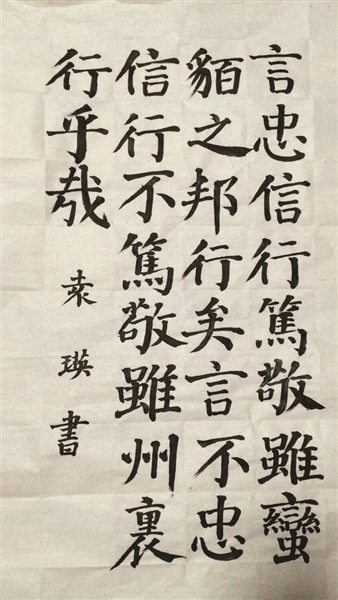 言忠信行篤敬雖蠻
貊之邦行矣言不忠
信行不篤敬雖州裏
行乎哉
袁瑛書